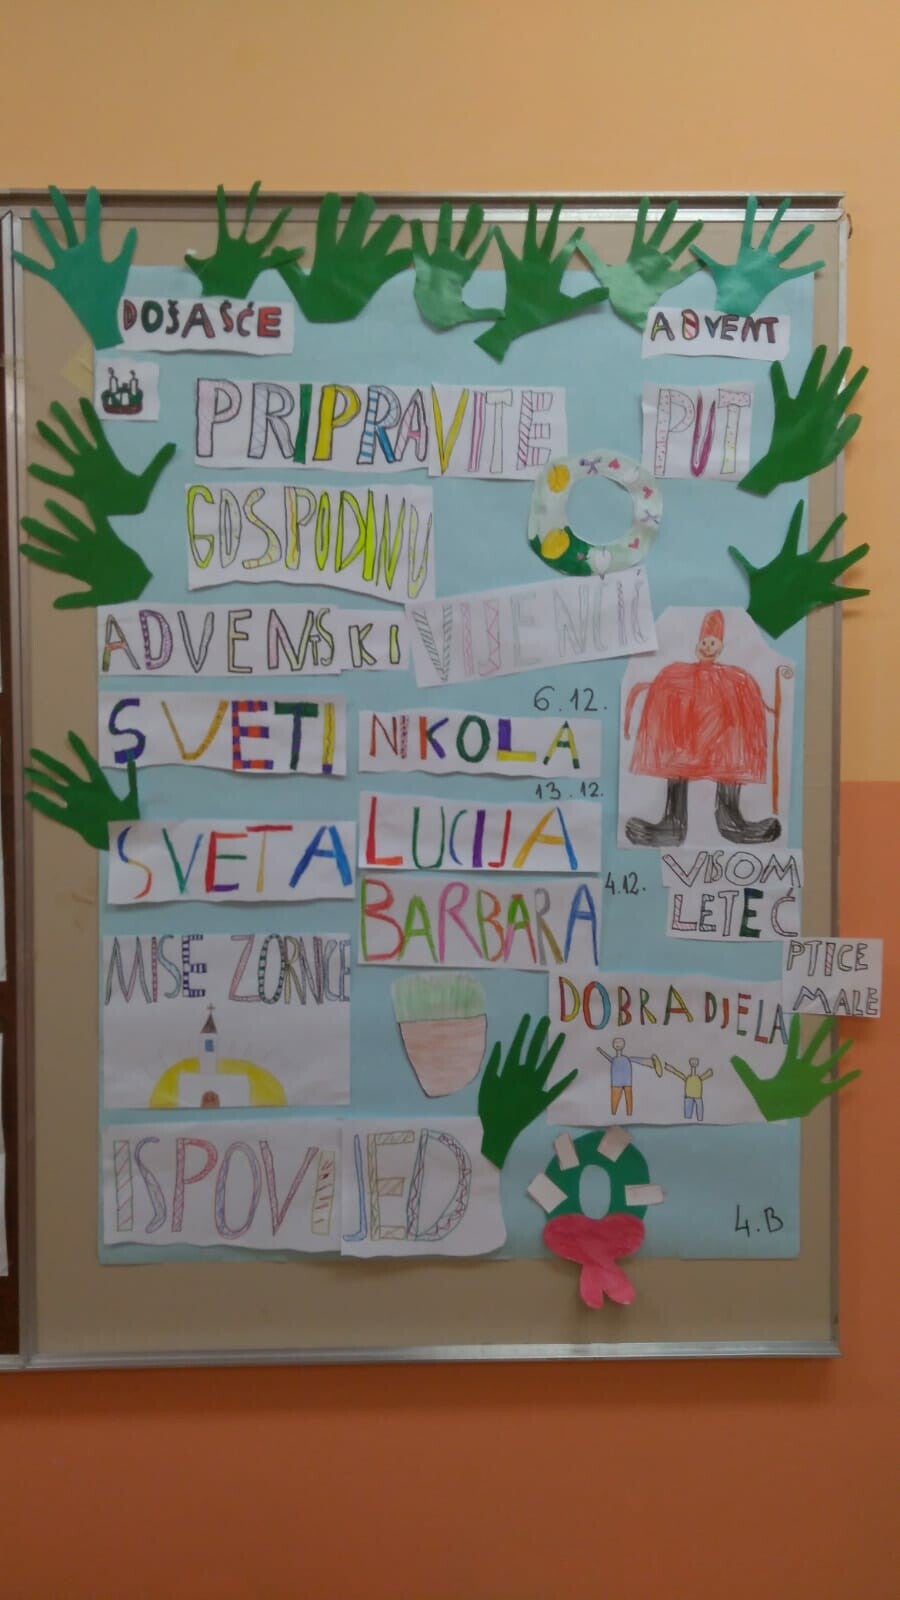 DOŠAŠĆE
ADVENT
PRIPRAVITE PUT
GOSPODINU
ADVENTSKI VIJENČIĆ
6.12.
SVETI NIKOLA
13.12.
SVETA LUCIJA
BARBARA 4.12.
VISOM
LETEĆ
PTICE
MALE
MISE ZORNICE
DOBRA DJELA
ISPOVIJED
4.B